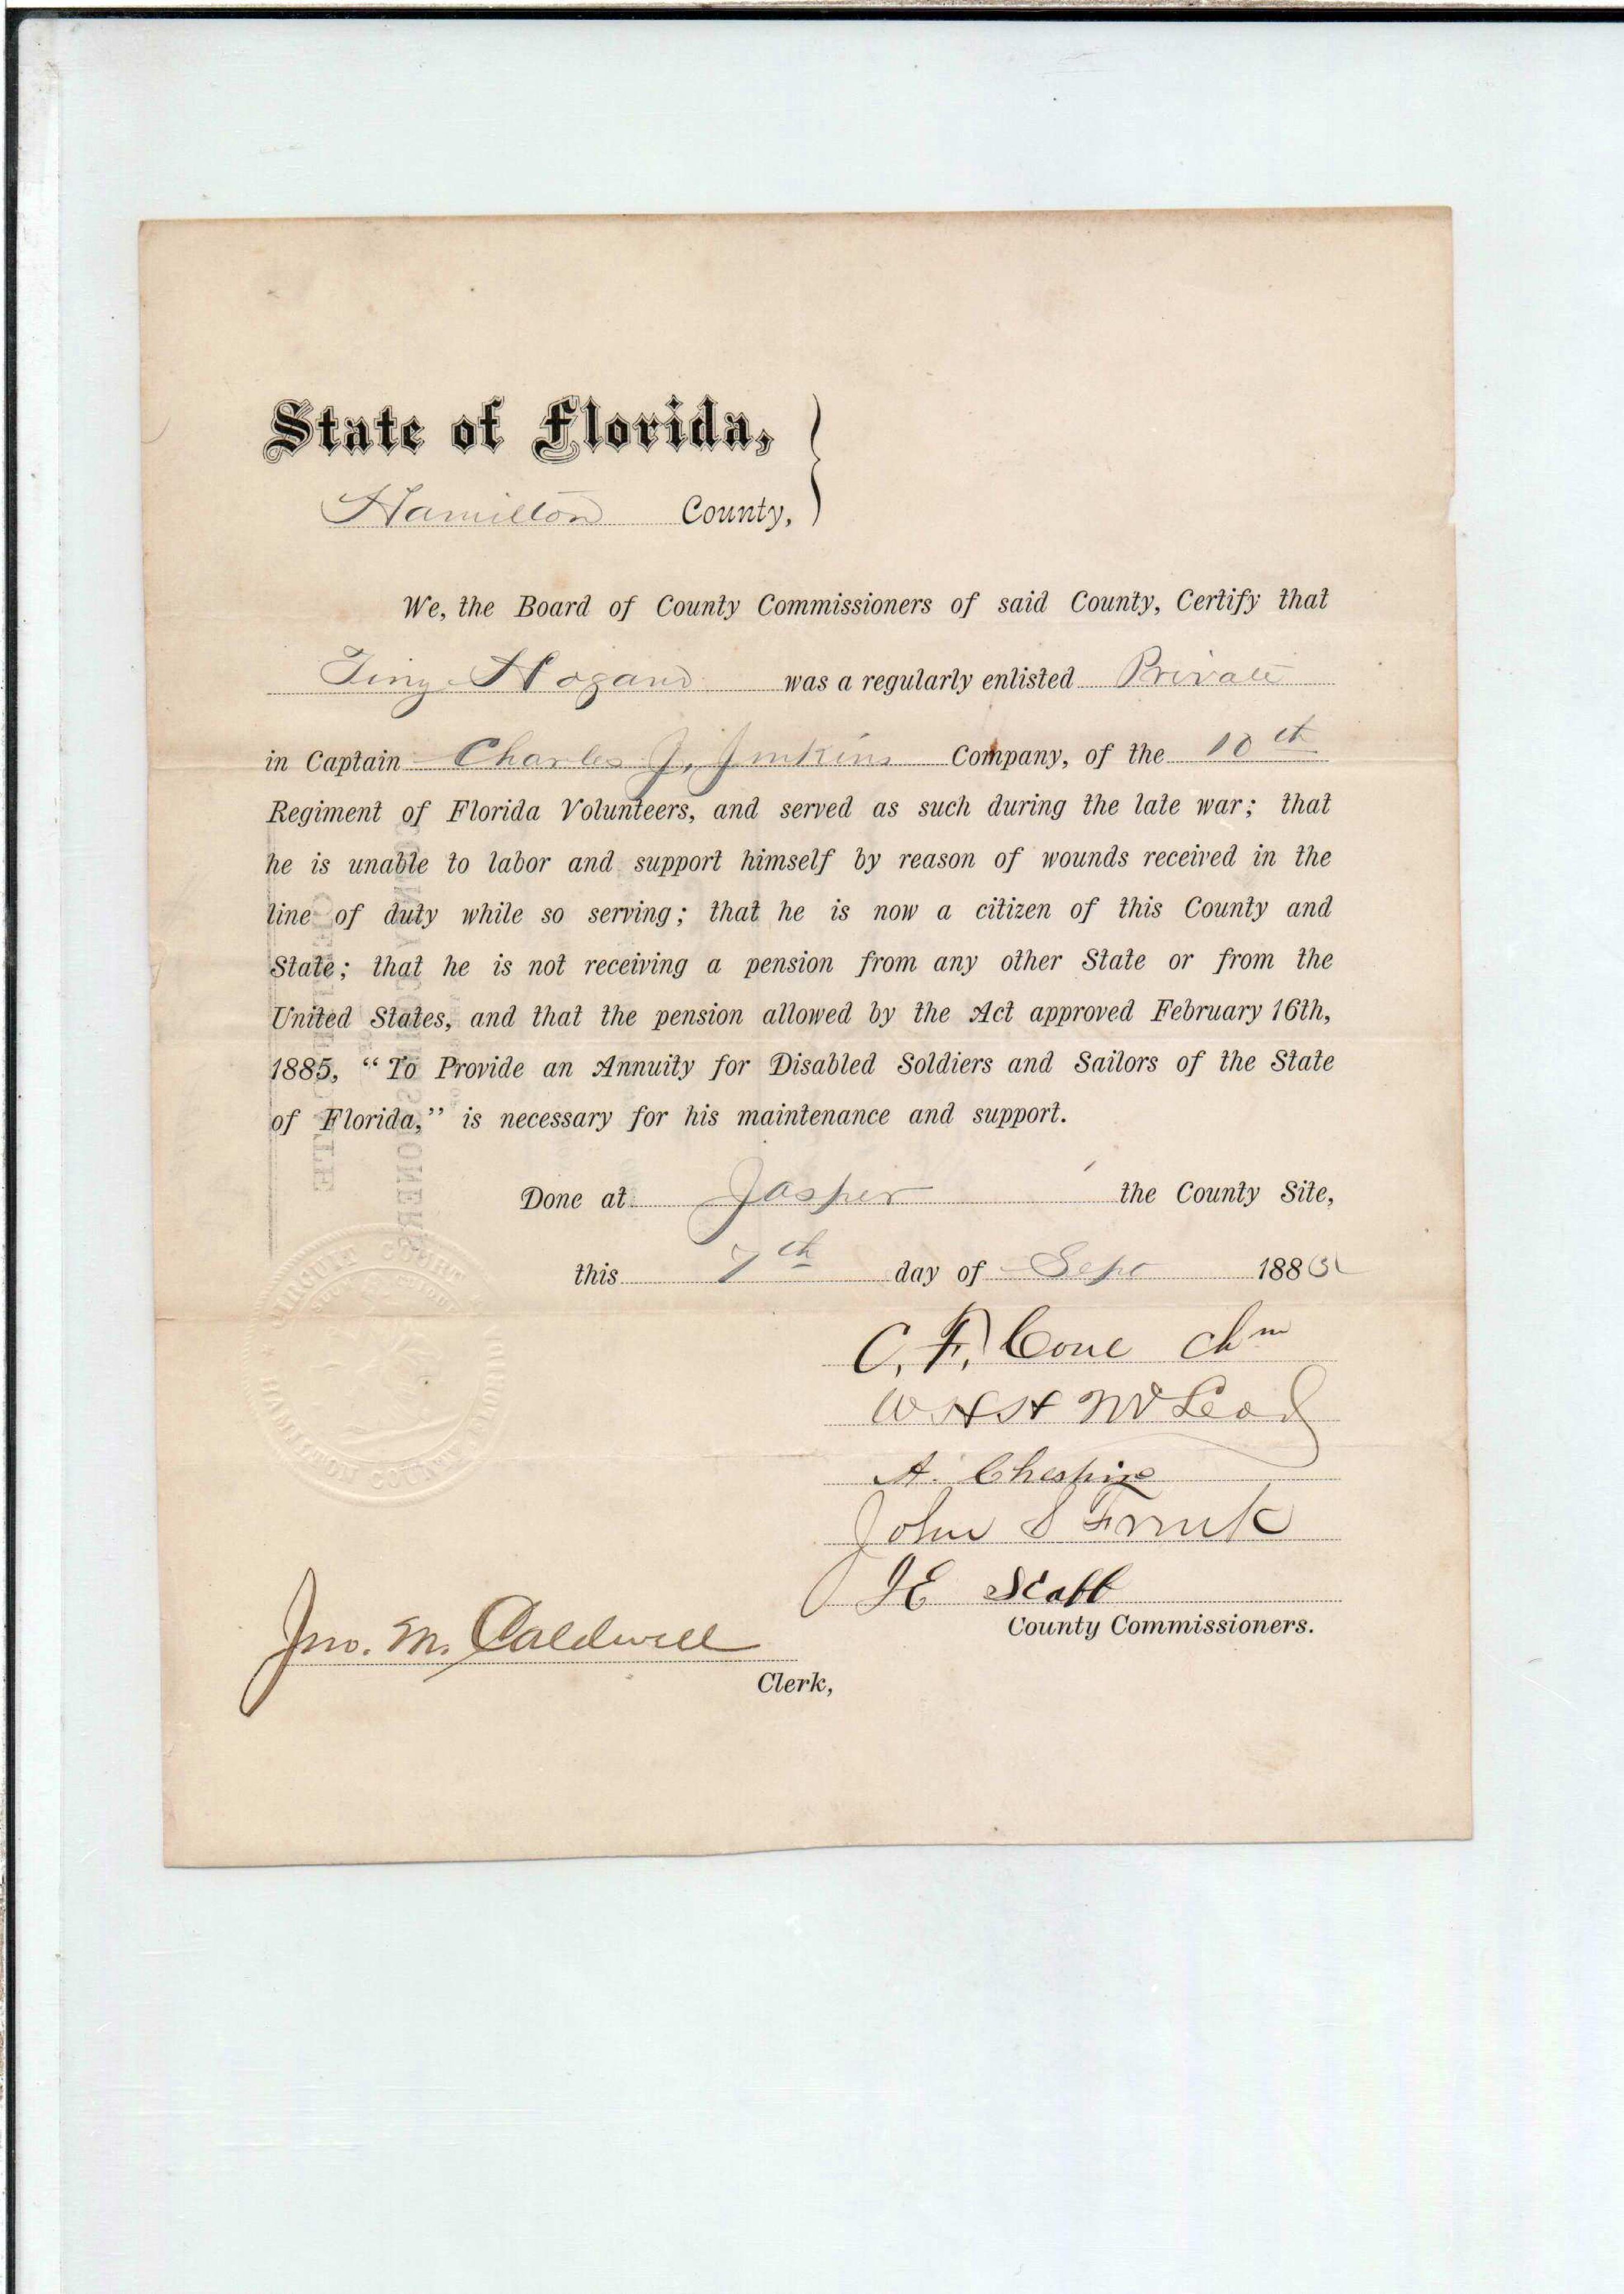 State of Florida,
Hamilton County,
We, the Board of County Commissioners of said County, Certify that
Tiny Hogans was a regularly enlisted Private
in Captain Charles J. Jenkins Company, of the 10th
Regiment of Florida Volunteers, and served as such during the late war; that
he is unable to labor and support himself by reason of wounds received in the
line of duty while so serving; that he is now a citizen of this County and
State; that he is not receiving a pension from any other State or from the
United States, and that the pension allowed by the Act approved February 16th,
1885, “To Provide an Annuity for Disabled Soldiers and Sailors of the State
of Florida,” is necessary for his maintenance and support.
Done at Jasper the County Site,
this 7th day of Sept 188
C. F. Cone Chm
W H H McLeod
A. Cheshire
John S
J E Stabb
County Commissioners.
Jno. M. Caldwell
Clerk,
CIRCUIT COURT
HAMILTON COUNTY FLORIDA